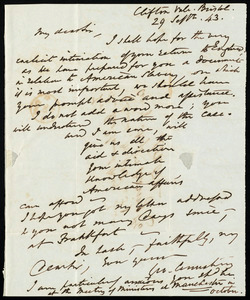 Clifton Vale. Bristol.
29 Septr. 43.
My dear Sir,
I shall hope for the very
earliest intimation of your return to England,
as we have prepared for you a document
in relation to American Slavery, on which
it is most important, we should have
your prompt advice and assistance.
I do not add a word more; you
will understand the nature of the case
and I am sure, will
give us all the
aid & direction
your intimate
knowledge of
American affairs
can afford
I hope you got my letter addressed
to you not many days since,
at Frankfort
In haste, faithfully, my
Dear Sir, Ever yours
Geo. Thompson
I am particularly anxious you should be
at the Meeting of Ministers at Manchester in
October